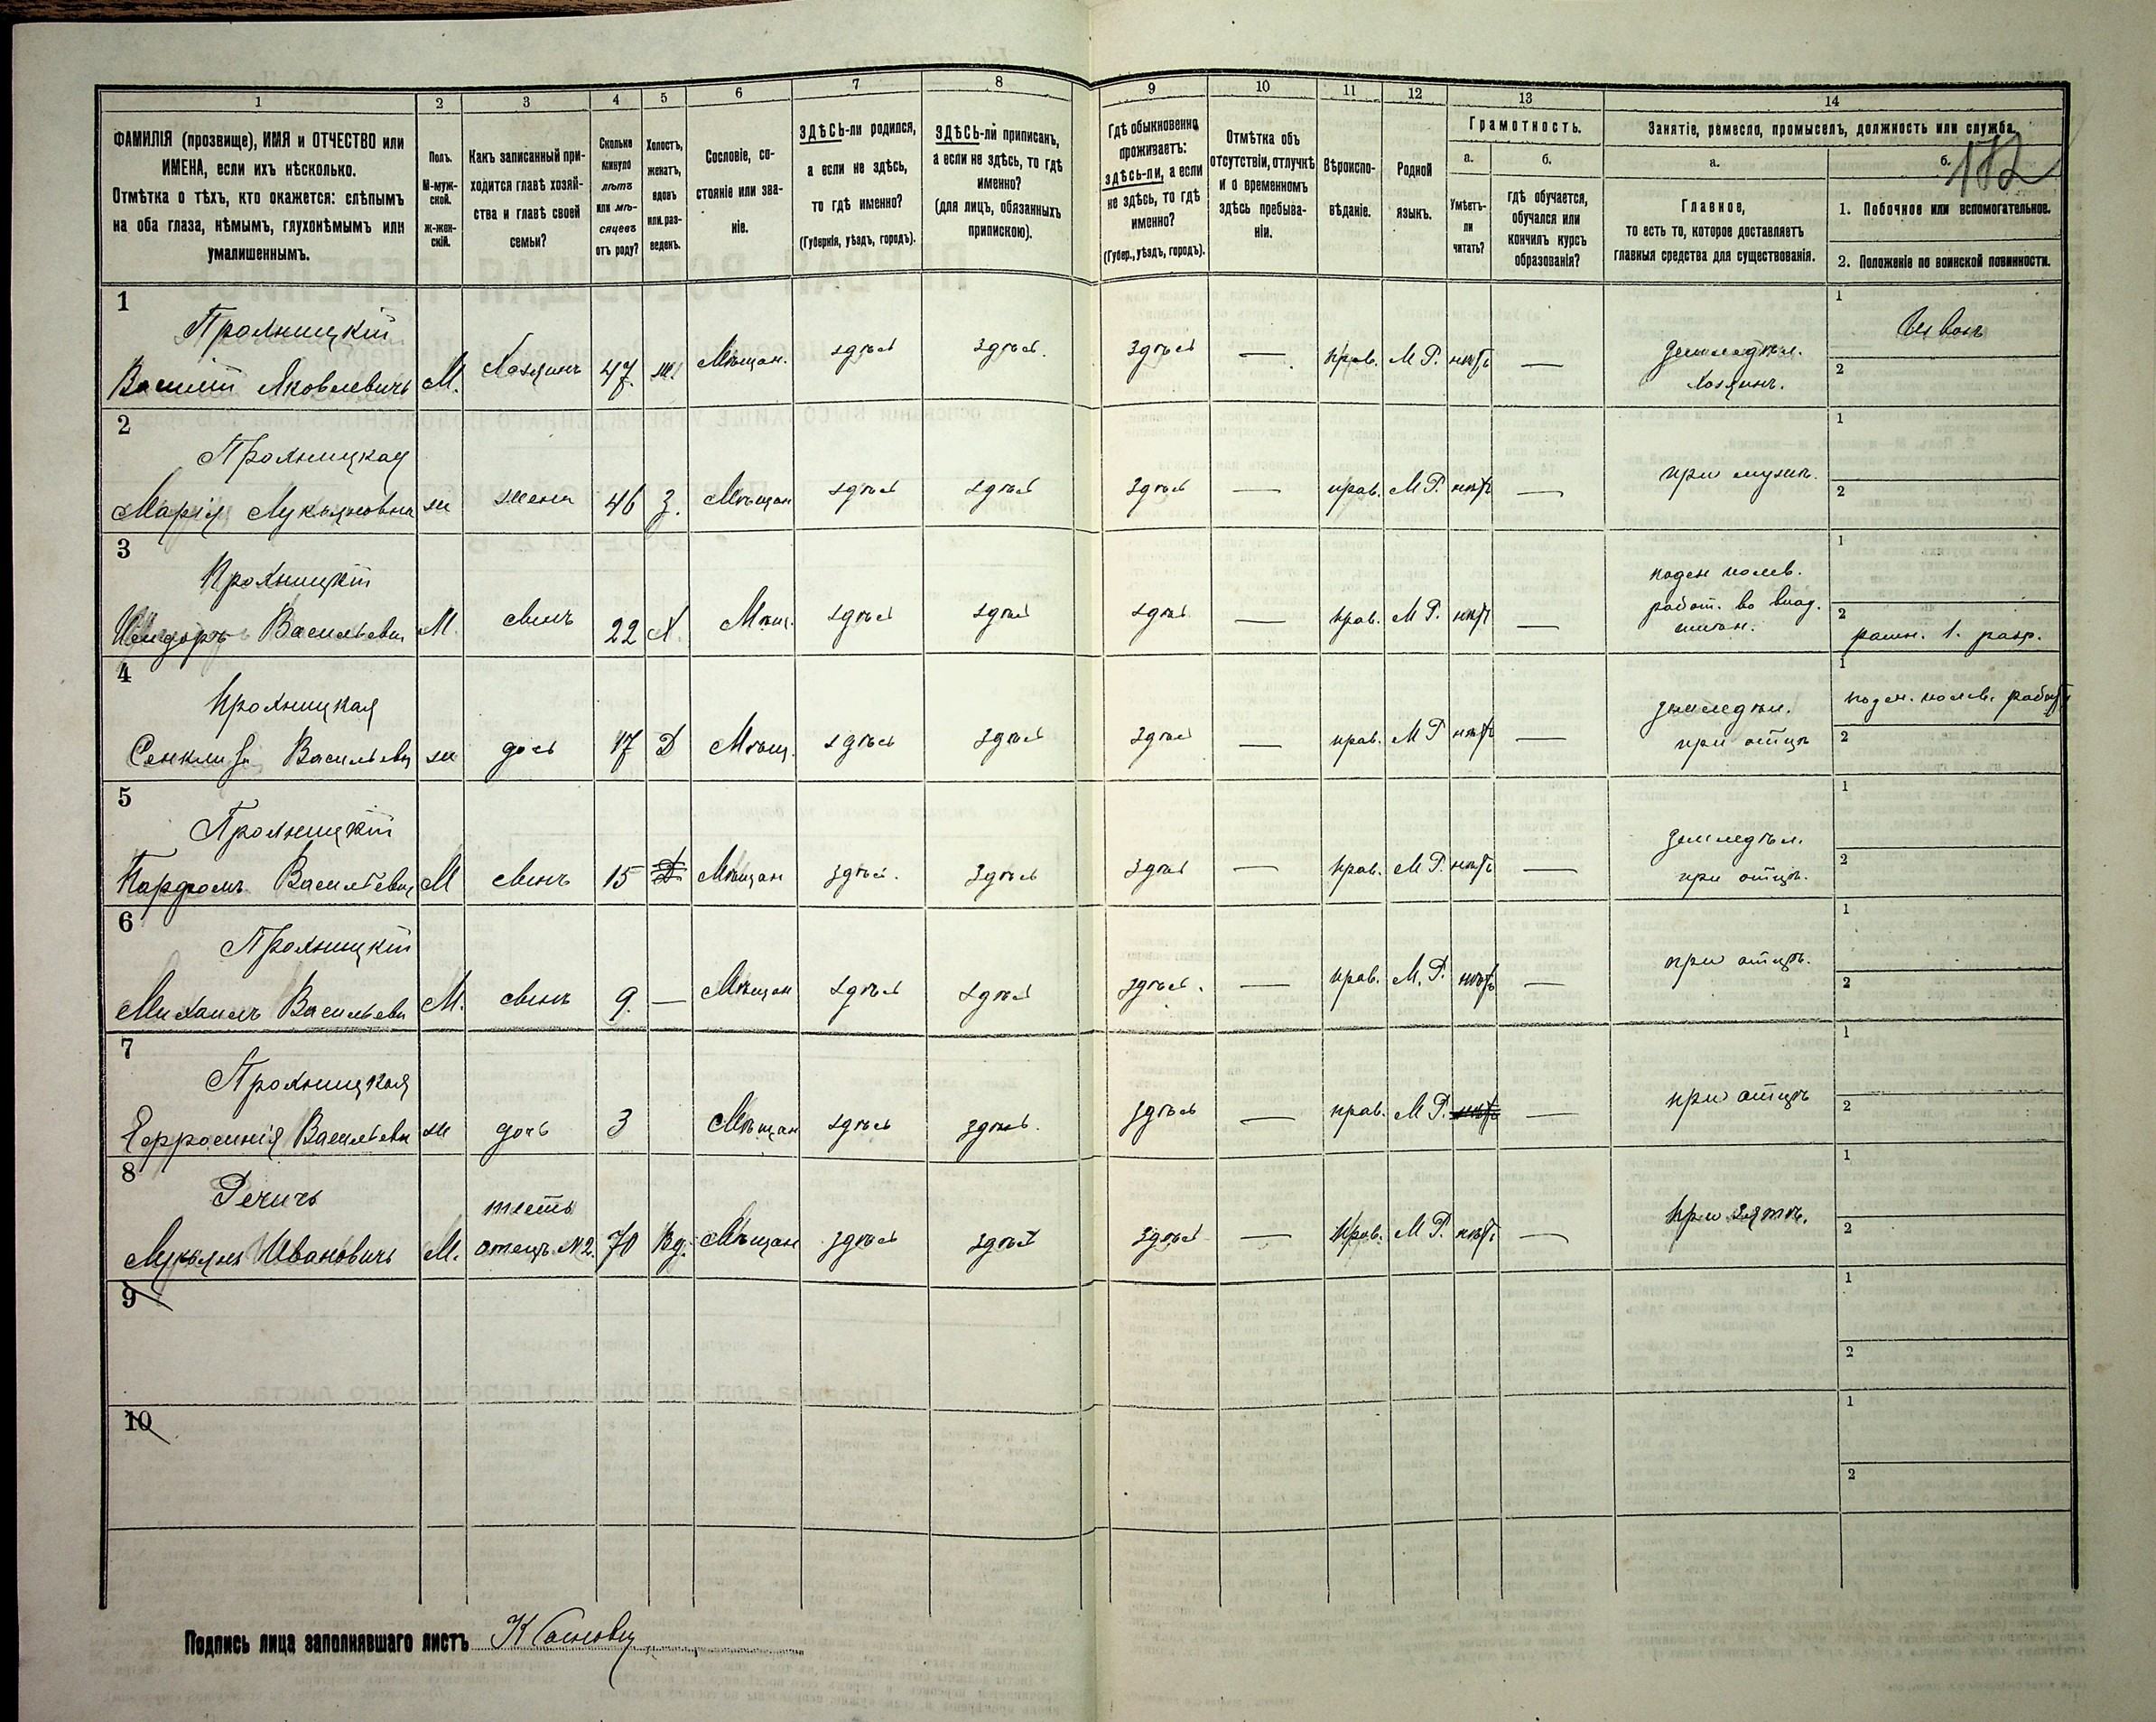 1 2 3 4 5 6 7 8 9 10 11 12 13 14
182
ФАМИЛІЯ (прозвище), ИМЯ и ОТЧЕСТВО или
ИМЕНА, если ихъ нѣсколько.
Отмѣтка о тѣхъ, кто окажется: слѣпымъ
на оба глаза, нѣмымъ, глухонѣмымъ или
умалишеннымъ.
Полъ.
М-муж-
ской.
ж-жен-
скій.
Какъ записанный при-
ходится главѣ хозяй-
ства и главѣ своей
семьи?
Сколько
минуло
лѣтъ
или мѣ-
сяцевъ
отъ роду?
Холостъ,
женатъ,
вдовъ
или раз-
веденъ.
Сословіе, со-
стояніе или зва-
ніе.
ЗДѢСЬ-ли родился,
а если не здѣсь,
то гдѣ именно?
(Губернія, уѣздъ, городъ).
ЗДѢСЬ-ли приписанъ,
а если не здѣсь, то гдѣ
именно?
(для лицъ, обязанныхъ
припискою).
Гдѣ обыкновенно
проживаетъ:
здѣсь-ли, а если
не здѣсь, то гдѣ
именно?
(Губер., уѣздъ, городъ).
Отмѣтка объ
отсутствіи, отлучкѣ
и о временномъ
здѣсь пребыва-
ніи.
Вѣроиспо-
вѣданіе.
Родной
языкъ.
Грамотность.
а.
Умѣетъ-
ли
читать?
б.
гдѣ обучается,
обучался или
кончилъ курсъ
образованія?
Занятіе, ремесло, промыселъ, должность или служба.
а.
Главное,
то есть то, которое доставляетъ
главныя средства для существованія.
б.
1. Побочное или вспомогательное.
2. Положеніе по воинской повинности.
1
Прохницкій
Василій Яковлевичъ М. Хозяинъ 47 ж. Мѣщан. здѣсь здѣсь. здѣсь — прав. М Р. нѣтъ —
земледѣл.
Хозяинъ.
1
2
2
Прохницкая
Марія Лукьяновна ж жена 46 З. Мѣщан здѣсь здѣсь здѣсь — прав. М Р. нѣтъ — при мужѣ.
1
2
3
Прохницкій
Исидоръ Васильевич М. сынъ 22 Х. Мѣщ. здѣсь здѣсь здѣсь — прав. М Р. нѣтъ —
поден полев.
работ. во влад.
1
2
ратн. 1. разр.
4
Прохницкая
Васильевн ж дочь 17 Д Мѣщ. здѣсь здѣсь здѣсь — прав. М Р нѣтъ —
земледѣл.
при отцѣ
1
поден. полев. работ
2
5
Прохницкій
Парфомъ Васильевич М сынъ 15 Д Мѣщан здѣсь. здѣсь здѣсь — прав. М Р. нѣтъ —
земледѣл.
при отцѣ.
1
2
6
Прохницкій
Михаилъ Васильевич М. сынъ 9. — Мѣщан здѣсь здѣсь здѣсь. — прав. М. Р. нѣтъ — при отцѣ.
1
2
7
Прохницкая
Ефросинія Васильевн ж дочь 3 Мѣщан здѣсь здѣсь. здѣсь — прав. М Р. нѣтъ — при отцѣ
1
2
8
Речичъ
тесть
Лукьян Ивановичъ М. отецъ №2. 70 Вд. Мѣщан здѣсь здѣсь здѣсь — Прав. М Р. нѣтъ — при зятѣ.
1
2
9
1
2
10
1
2
Подпись лица заполнявшаго листъ